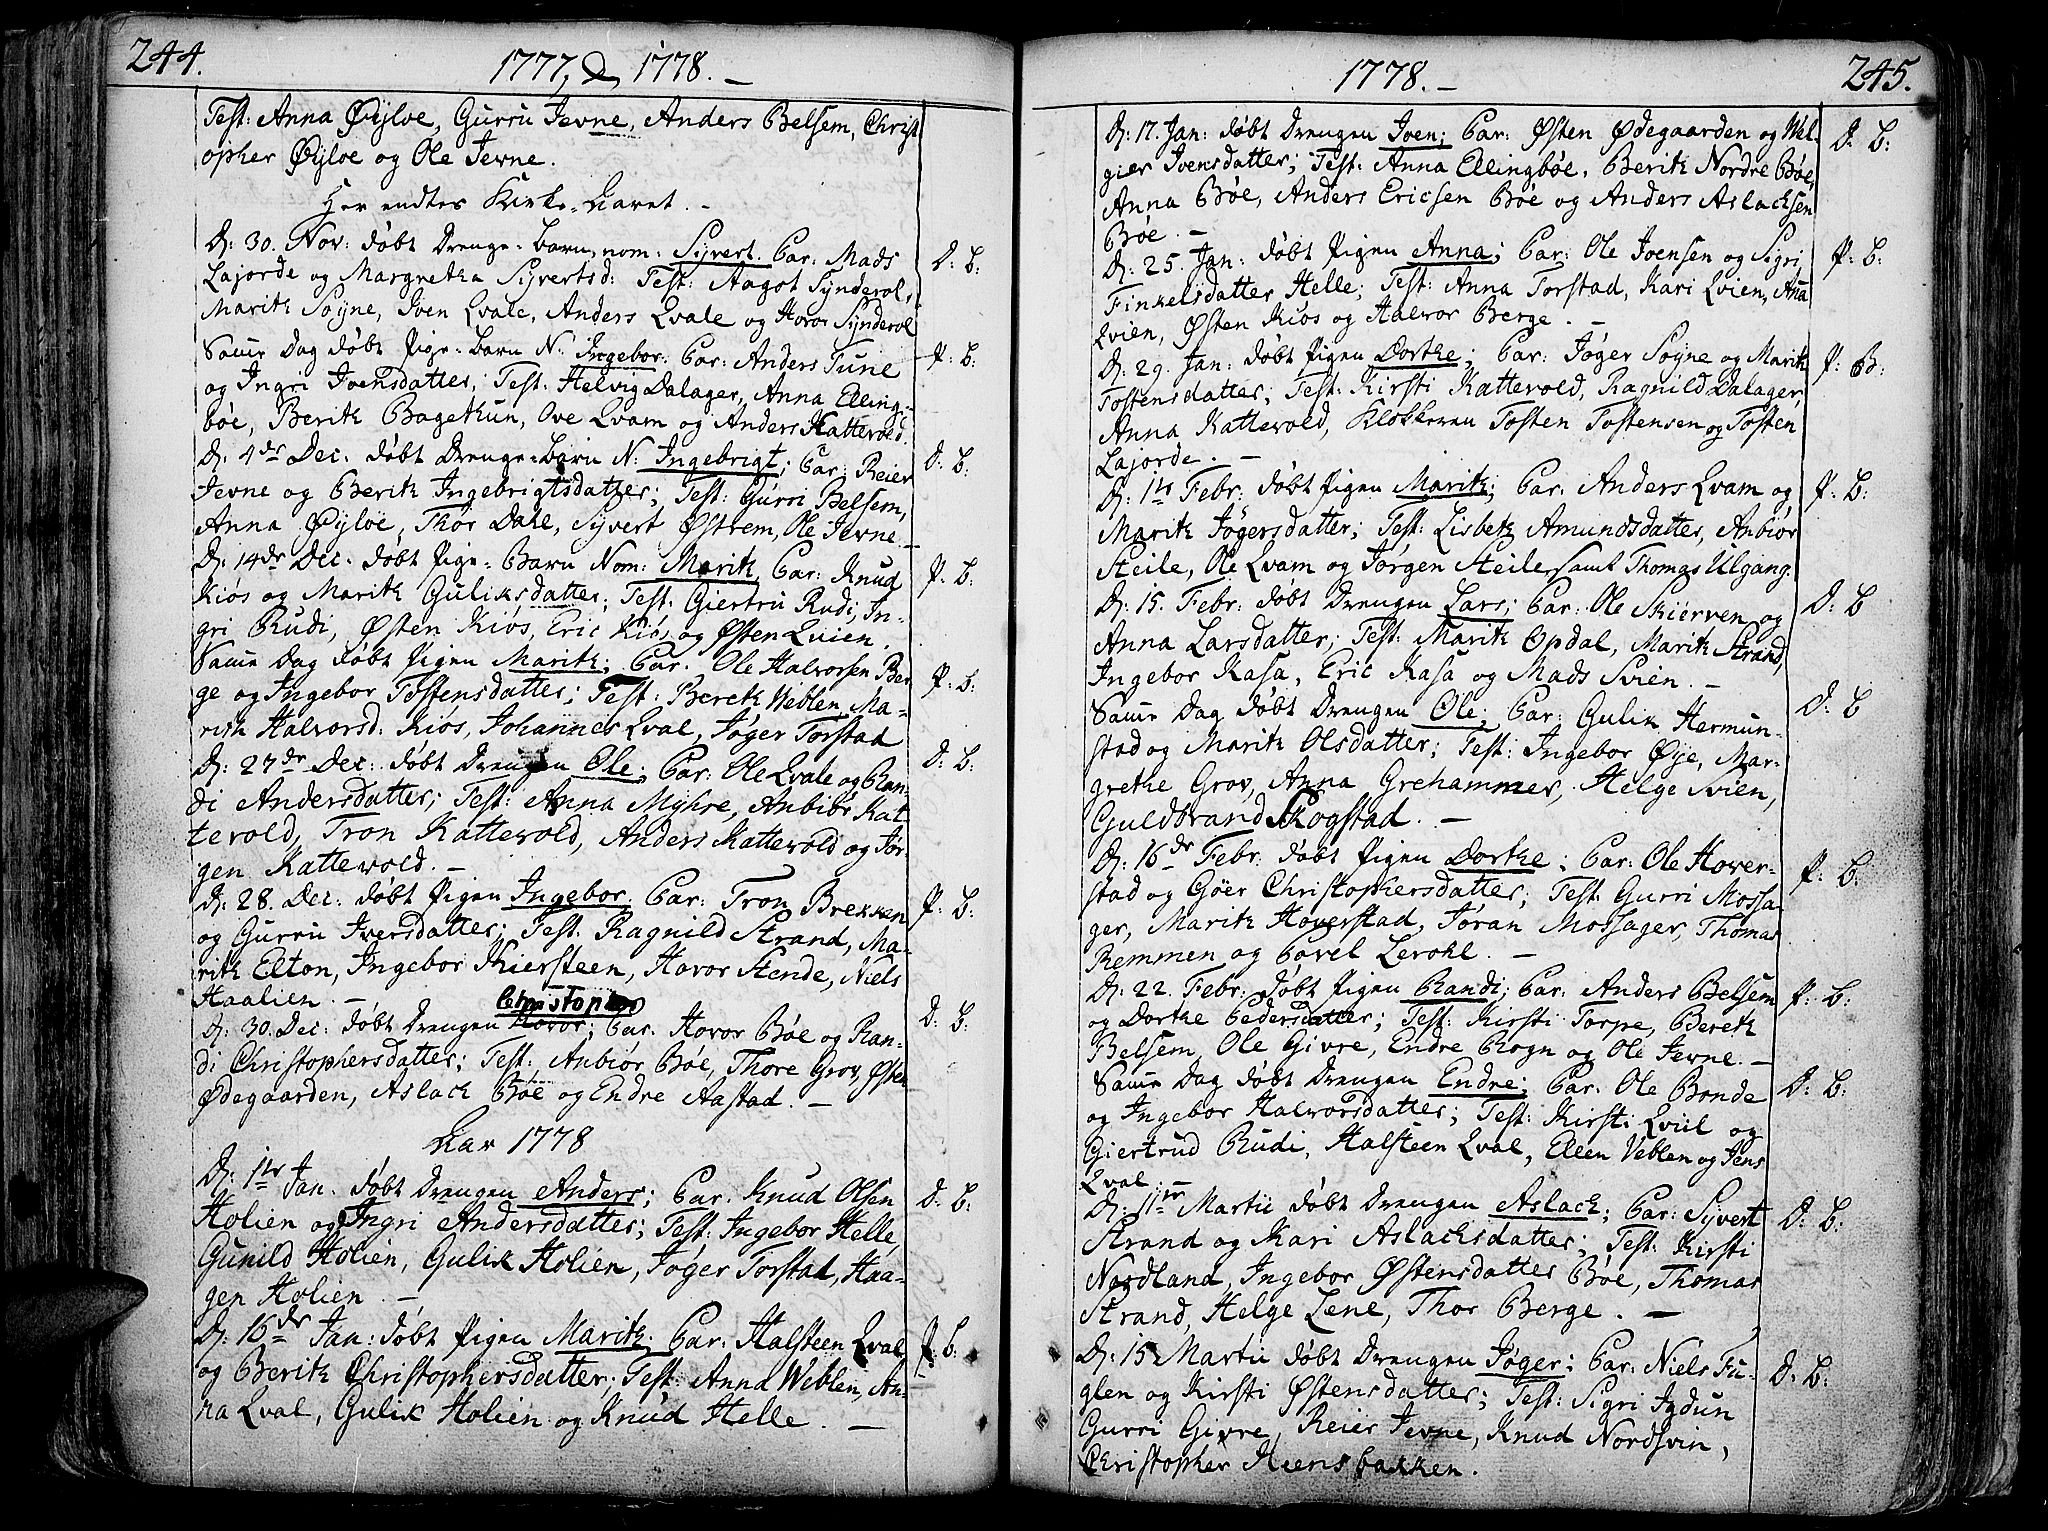 244.
1777, & 1778. –
Test: Anna Øÿloe, Gurru Jevne, Anders Belsem, Christ
opher Øÿloe og Ole Jevne.
Her endtes Kirke-Aaret. –
D: 30. Nov: døbt Drenge-barn, nom: Syvert. Par: Mads
Lajorde og Margretha Syvertsd: Test: Aagot Synderol,
Marith Søyne, Iven Qvale, Anders Qvale og Hovor Synderol
D: B:
Samme Dag døbt Pige-barn N: Ingebor. Par: Anders Tune
og Ingri Ivensdatter; Test: Helvig Dalager, Anna Elling-
bøe, Berith Bagethun, Ove Qvam og Anders Kattevold.
P: B:
D: 4de Dec. døbt Drenge-Barn N: Ingebrigt; Par: Reier
Jevne og Berith Ingebrigtsdatter; Test: Gurri Belsem,
Anna Øÿloe, Thor Dahl, Syvert Østrem, Ole Jevne. –
D: B:
D: 14de Dec. døbt Pige-Barn Nom: Marith, Par: Knud
Kiøs og Marith Guliksdatter; Test: Giertru Rudi, In-
gri Rudi, Østen Kiøs, Eric Kiøs og Østen Qvien.
P: B:
Samme Dag døbt Pigen Marith; Par. Ole Halvorsen Ber
ge og Ingebor Tostensdatter; Test: Bereth Weblen, Ma-
rith Halvorsd: Kiøs, Johannes Qval, Jøger Torstad
P: B:
D: 27de Dec: døbt Drengen Ole; Par: Ole Qvale og Ran-
di Andersdatter; Test: Anna Myhre, Anbiør Kat-
tevold, Tron Kattewold, Anders Kattewold og Jør-
gen Kattewold. –
D: B:
D: 28. Dec: døbt Pigen Ingebor. Par: Tron Brekken
og Gurru Iversdatter; Test. Ragnild Strand, Ma-
rith Elton, Ingebor Kiersteen, Hovor Stende, Niels
Haalien. –
P: B:
Christopher
D: 30. Dec: døbt Drengen Hovor; Par. Hovor Bøe og Ran-
di Christophersdatter; Test: Anbiør Bøe, Thore Grov, Østen
Ødegaarden, Aslack Bøe og Endre Aastad. –
D: B:
Aar 1778
D: 1te Jan. døbt Drengen Anders; Par. Knud Olsen
Holien og Ingri Andersdatter; Test: Ingebor Helle,
Gunild Holien, Gulik Holien, Jøger Torstad, Haa-
gen Holien. –
D: B:
D: 16de Jan: døbt Pigen Marith. Par: Halsteen Qval
og Berith Christophersdatter; Test: Anna Weblen, An-
na Qval, Gulik Holien og Knud Helle. –
P: B:
1778. –
245.
D: 17. Jan: døbt Drengen Iven; Par: Østen Ødegaarden og Wel-
gier Ivensdatter; Test: Anna Ellingbøe, Berith Nordre Bøe,
Anna Bøe, Anders Ericsen Bøe og Anders Aslacksen
Bøe. –
D: B:
D: 25. Jan: døbt Pigen Anna; Par: Ole Ivensen og Sigri
Finkelsdatter Helle; Test: Anna Torstad, Kari Qvien, Ana
Qvien, Østen Kiøs og Halvor Berge. –
P: B:
D: 29. Jan: døbt Pigen Dorthe; Par: Jøger Søyne og Marith
Tostensdatter; Test: Kirsti Kattevold, Ragnild Dalager,
Anna Kattewold, Klokkeren Tosten Tostensen og Tosten
Lajorde. –
P: B:
D: 1te Febr: døbt Pigen Marith; Par: Anders Qvam og
Marith Jøgersdatter; Test: Lisbeth Amundsdatter, Anbiør
Steile, Ole Qvam og Jørgen Steile samt Thomas Ulgang.
P: B:
D: 15. Febr: døbt Drengen Lars; Par: Ole Skierven og
Anna Larsdatter; Test: Marith Opdal, Marith Strand,
Ingebor Kasa, Eric Kasa og Mads Svien. –
D: B
Samme Dag døbt Drengen Ole; Par: Gulik Hermun-
stad og Marith Olsdatter; Test: Ingebor Øye, Mar-
grethe Grov, Anna Grehammer, Helge Svien,
Guldbrand Skogstad. –
D: B
D: 16de Febr: døbt Pigen Dorthe; Par: Ole Hover-
stad og Gøer Christophersdatter; Test: Gurri Mossa-
ger, Marith Hoverstad, Jøran Mossager, Thomas
Remmen og Pavel Lerohl. –
P: B:
D: 22. Febr: døbt Pigen Randi; Par: Anders Belsem
og Dorthe Pedersdatter; Test: Kirsti Torpe, Bereth
Belsem, Ole Givre, Endre Rogn og Ole Jevne. –
P: B:
Samme Dag døbt Drengen Endre; Par: Ole Bonde
og Ingebor Halvorsdatter; Test: Kirsti Qviil og
Giertrud Rudi, Halsteen Qval, Ellen Veblen og Jens
Qval.
D: B:
D: 11te Martii døbt Drengen Aslack; Par: Syvert
Strand og Kari Aslacksdatter; Test: Kirsti
Nordland, Ingebor Østensdatter Bøe, Thomas
Strand, Helge Lene, Thor Berge. –
D: B:
D: 15 Martii døbt Drengen Jøger; Par: Niels Fu-
glen og Kirsti Østensdatter; Test: Sigri Jgdun
Gurri Givre, Reier Jevne, Knud Nordsvin,
Christopher Hiensbakken.
D: B: